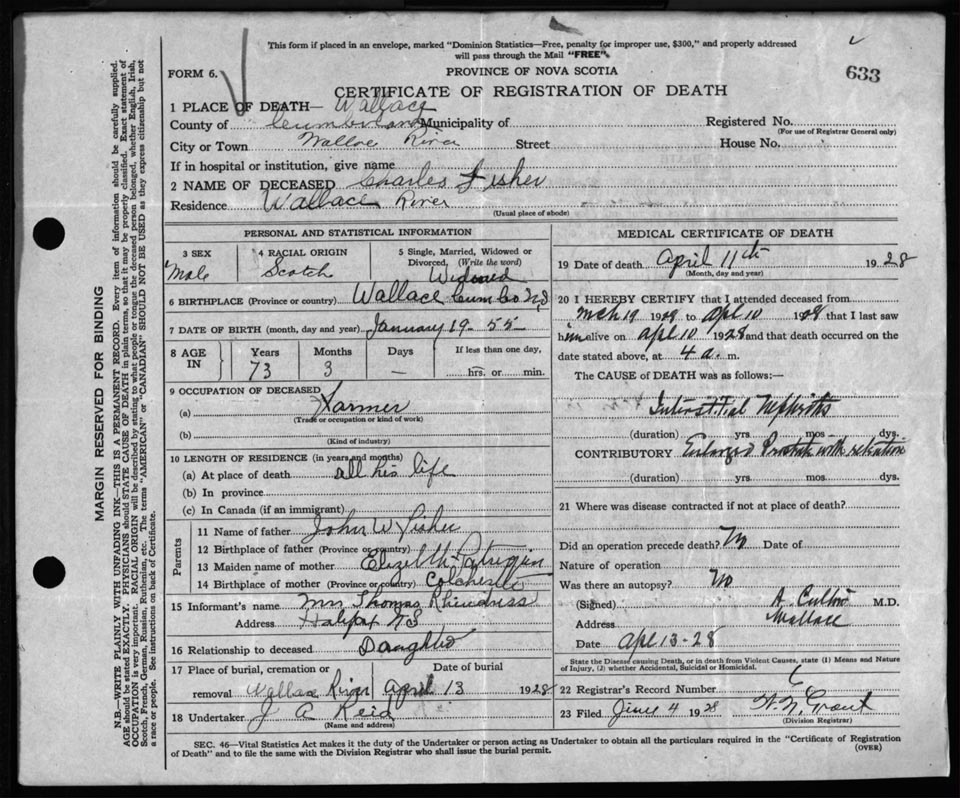 This form if placed in an envelope, marked "Dominion Statistics—Free, penalty for improper use, $300," and properly addressed
will pass through the Mail "FREE".
633
FORM 6.
PROVINCE OF NOVA SCOTIA
CERTIFICATE OF REGISTRATION OF DEATH
1 PLACE OF DEATH— Wallace
County of Cumberland Municipality of Registered No.
(For use of Registrar General only)
City or Town Wallace River Street House No.
If in hospital or institution, give name
2 NAME OF DECEASED Charles Fisher
Residence Wallace River
(Usual place of abode)
PERSONAL AND STATISTICAL INFORMATION
3 SEX Male
4 RACIAL ORIGIN Scotch
5 Single, Married, Widowed or Divorced, (Write the word) Widowed
6 BIRTHPLACE (Province or country) Wallace Cumb Co N.S
7 DATE OF BIRTH (month, day and year) January 19 - 55
8 AGE IN Years 73 Months 3 Days — If less than one day, hrs. or min.
9 OCCUPATION OF DECEASED
(a) Farmer
(Trade or occupation or kind of work)
(b)
(Kind of industry)
10 LENGTH OF RESIDENCE (in years and months)
(a) At place of death all his life
(b) In province
(c) In Canada (if an immigrant)
Parents
11 Name of father John W Fisher
12 Birthplace of father (Province or country)
13 Maiden name of mother Elizabeth
14 Birthplace of mother (Province or country) Colchester
15 Informant's name Mrs Thomas
Address Halifax NS
16 Relationship to deceased Daughter
17 Place of burial, cremation or removal Wallace River Date of burial April 13 1928
18 Undertaker J A Reid
(Name and address)
MEDICAL CERTIFICATE OF DEATH
19 Date of death April 11th 1928
(Month, day and year)
20 I HEREBY CERTIFY that I attended deceased from
Mch 19 1928 to Apl 10 1928 that I last saw
him alive on Apl 10 1928 and that death occurred on the
date stated above, at 4 a. m.
The CAUSE of DEATH was as follows:—
Interstitial Nephritis
(duration) yrs. mos. dys.
CONTRIBUTORY Enlarged Prostate with retention
(duration) yrs. mos. dys.
21 Where was disease contracted if not at place of death?
Did an operation precede death? No Date of
Nature of operation
Was there an autopsy? No
(Signed) A. M.D.
Address Wallace
Date Apl 13-28
State the Disease causing Death, or in death from Violent Causes, state (1) Means and Nature
of Injury, (2) whether Accidental, Suicidal or Homicidal.
22 Registrar's Record Number
23 Filed June 4 1928 Grant
(Division Registrar)
SEC. 46—Vital Statistics Act makes it the duty of the Undertaker or person acting as Undertaker to obtain all the particulars required in the "Certificate of Registration
of Death" and to file the same with the Division Registrar who shall issue the burial permit.
(OVER)
MARGIN RESERVED FOR BINDING
N.B.—WRITE PLAINLY WITH UNFADING INK—THIS IS A PERMANENT RECORD. Every item of information should be carefully supplied.
AGE should be stated EXACTLY. PHYSICIANS should STATE CAUSE OF DEATH in plain terms, so that it may be properly classified. Exact statement of
OCCUPATION is very important. RACIAL ORIGIN will be described by stating to what people or tongue the deceased person belonged, whether English, Irish,
Scotch, French, German, Russian, Ruthenian, etc. The terms "AMERICAN" or "CANADIAN" SHOULD NOT BE USED as they express citizenship but not
a race or people. See instructions on back of Certificate.